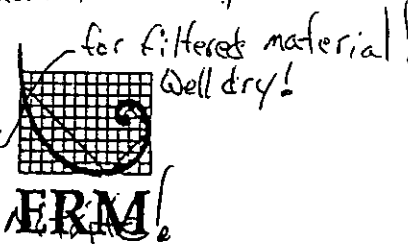 for filtered material!
Well dry!
ERM